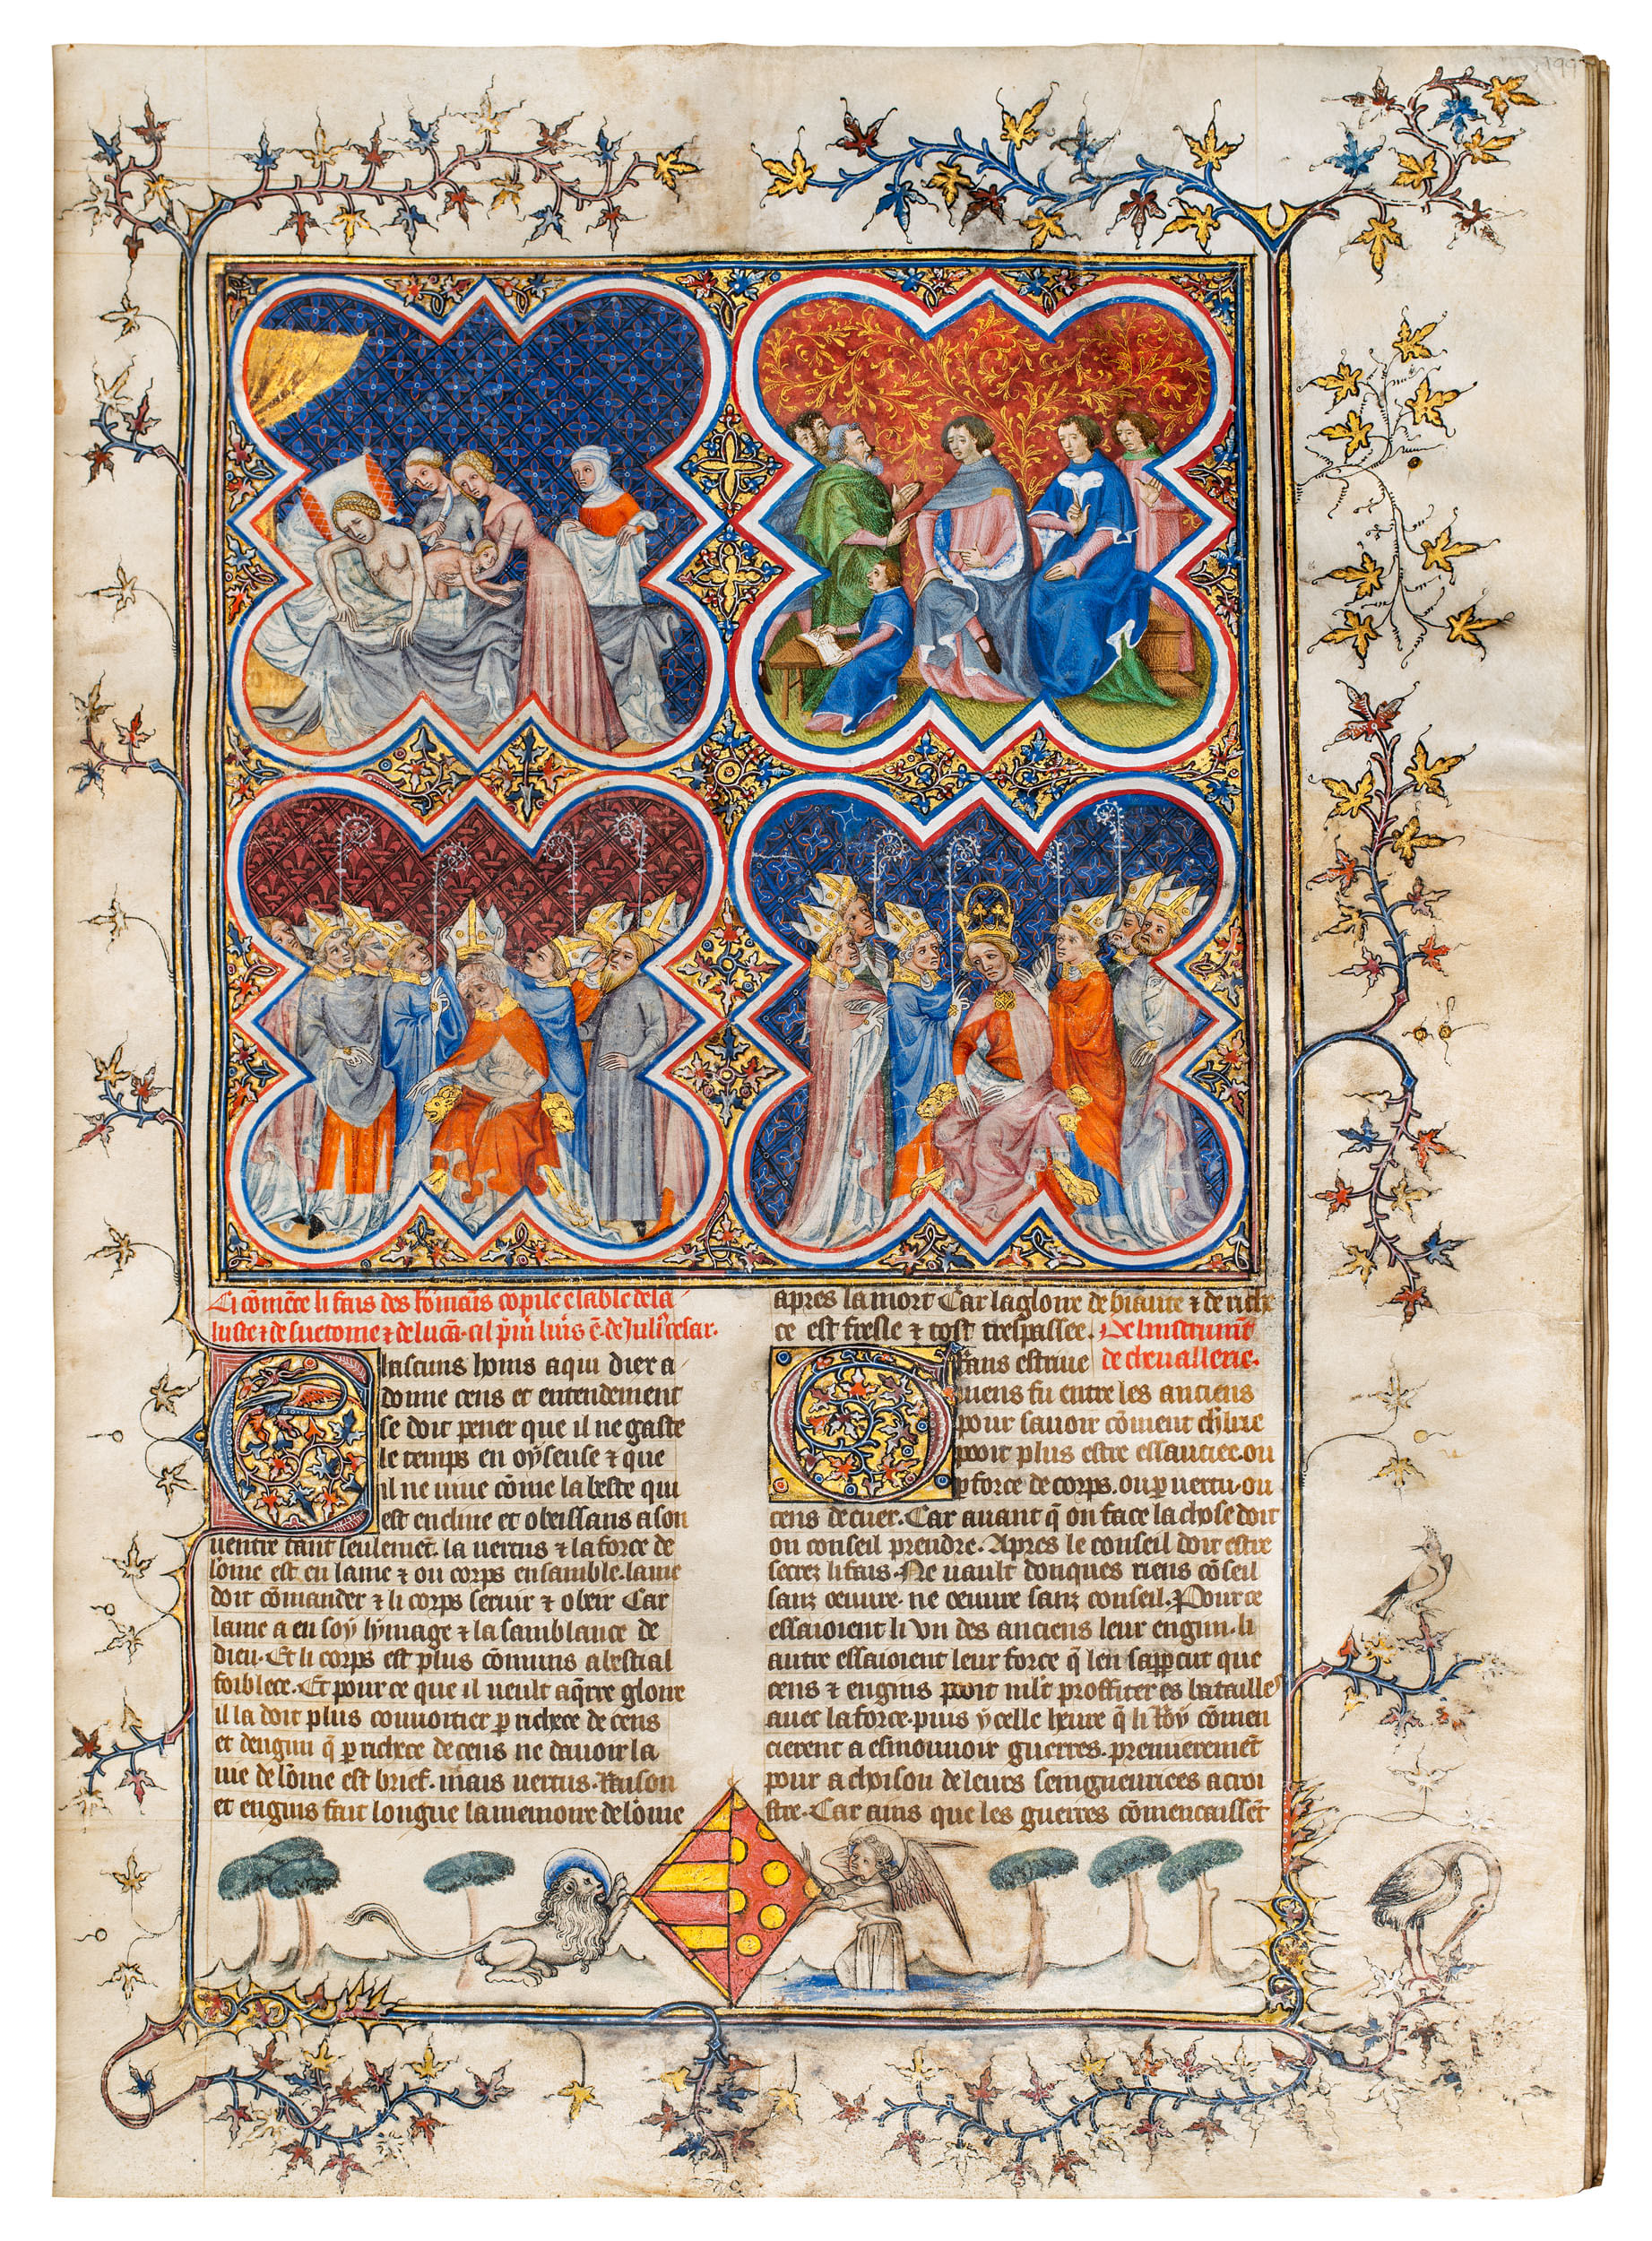 199
Ci cōmēce li fais des Rōmaīs cōpile ēsable de sa
luste ⁊ de suetoine ⁊ de lucā. cil p̄m̄ liur̄s ē. de Juli9 cesar.
Chascuns hōms a qui dieu a
donne cens et entendement
se doit pener que il ne gaste
le temps en oyseuse ⁊ que
il ne uiue cōme la beste qui
est encline et obeissans a son
uentre tant seulemēt. la uertus ⁊ la force de
lōme est en lame ⁊ ou corps ensamble. lame
doit cōmander ⁊ li corps seruir ⁊ obeir Car
lame a en soy lymage ⁊ la samblance de
dieu. Et li corps est plus cōmuns a bestial
foiblece. Et pour ce que il ueult aq̄rre gloire
il la doit plus couuoitier p richece de cens
et dengin q̄ p richece de cens ne dauoir la
uie de lōme est brief. mais uertus. Raison
et engins fait longue la memoire de lōme
apres la mort Car la gloire de biaute ⁊ de riche
ce est fresle ⁊ tost trespassee. De linstrumēt
de cheuallerie.
Grans estriue
quens fu entre les anciens
pour sauoir cōment ch̄lrie
pooit plus estre essauciee. ou
p force de corps. ou p uertu. ou
cens de cuer. Car auant q̄ on face la chose doit
on conseil prendre. Apres le conseil doit estre
secrez li fais. Ne uault donques riens cōseil
sanz oeuure. ne oeuure sanz conseil. Pour ce
essaioient li vn des anciens leur engin. li
autre essaioient leur force q̄ len sapp̄cut que
cens ⁊ engins pooit ml̄t proffiter es bataille9
auec la force. puis ycelle heure q̄ li Roy cōmen
cierent a esmouuoir guerres. premieremēt
pour achoison de leurs seingneuries acroi
stre. Car ains que les guerres cōmencaissēt